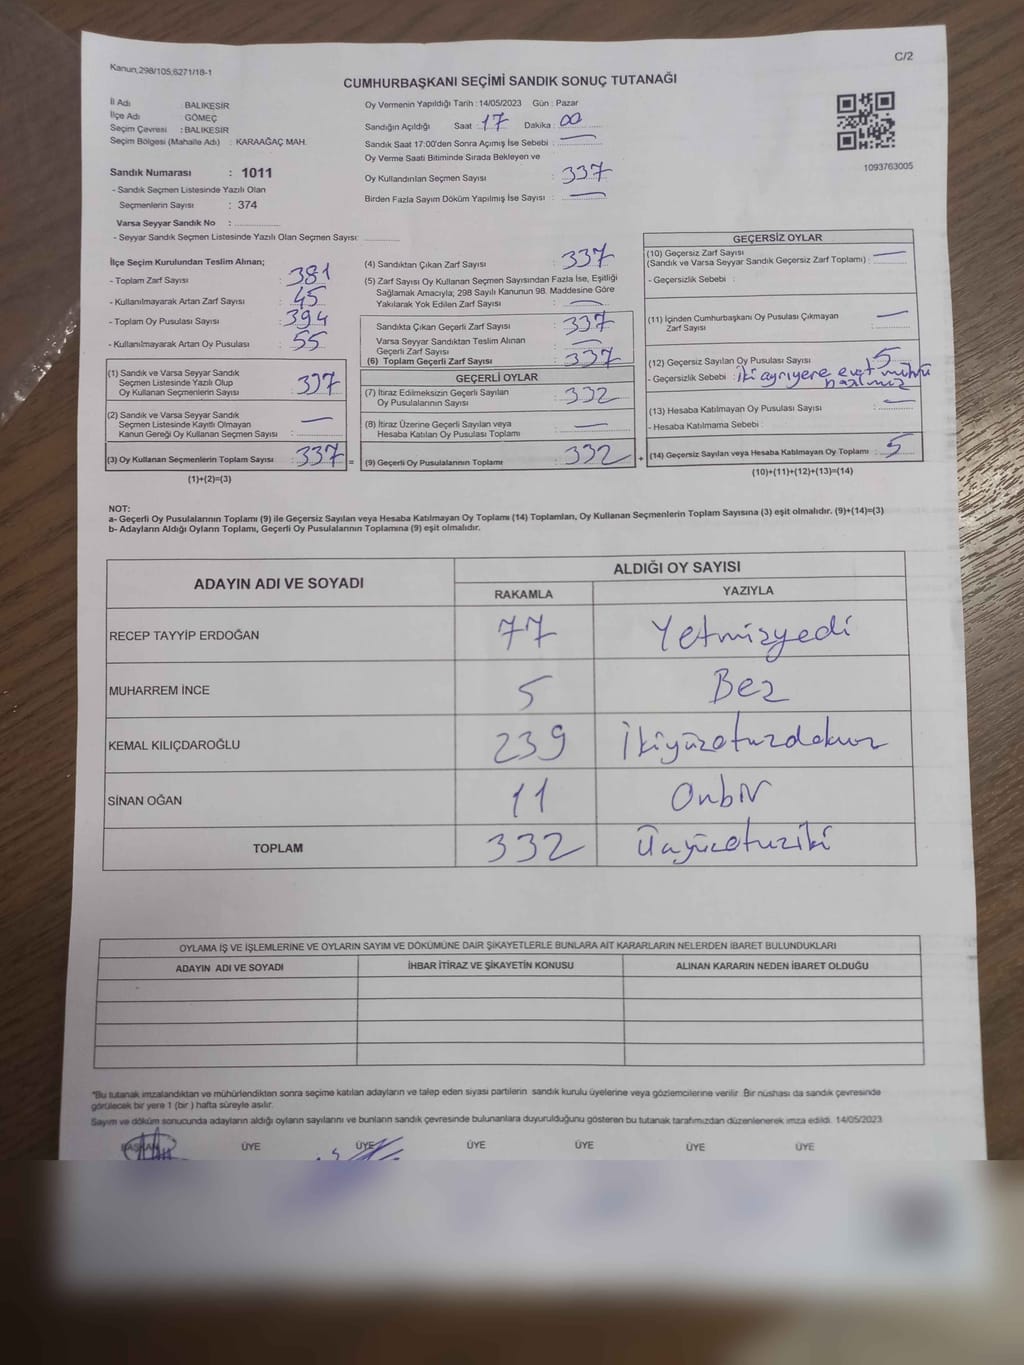 Kanun;298/105,6271/18-1
C/2
CUMHURBAŞKANI SEÇİMİ SANDIK SONUÇ TUTANAĞI
İl Adı : BALIKESİR
İlçe Adı : GÖMEÇ
Seçim Çevresi : BALIKESİR
Seçim Bölgesi (Mahalle Adı) : KARAAĞAÇ MAH.
Sandık Numarası : 1011
- Sandık Seçmen Listesinde Yazılı Olan
Seçmenlerin Sayısı : 374
Varsa Seyyar Sandık No :
- Seyyar Sandık Seçmen Listesinde Yazılı Olan Seçmen Sayısı:
Oy Vermenin Yapıldığı Tarih : 14/05/2023 Gün : Pazar
Sandığın Açıldığı Saat 17 Dakika : 00
Sandık Saat 17:00'den Sonra Açımış İse Sebebi : —
Oy Verme Saati Bitiminde Sırada Bekleyen ve
Oy Kullandırılan Seçmen Sayısı : 337
Birden Fazla Sayım Döküm Yapılmış İse Sayısı : —
1093763005
İlçe Seçim Kurulundan Teslim Alınan;
- Toplam Zarf Sayısı : 381
- Kullanılmayarak Artan Zarf Sayısı : 45
- Toplam Oy Pusulası Sayısı : 394
- Kullanılmayarak Artan Oy Pusulası : 55
(1) Sandık ve Varsa Seyyar Sandık
Seçmen Listesinde Yazılı Olup
Oy Kullanan Seçmenlerin Sayısı : 337
(2) Sandık ve Varsa Seyyar Sandık
Seçmen Listesinde Kayıtlı Olmayan
Kanun Gereği Oy Kullanan Seçmen Sayısı : —
(3) Oy Kullanan Seçmenlerin Toplam Sayısı : 337 =
(1)+(2)=(3)
(4) Sandıktan Çıkan Zarf Sayısı : 337
(5) Zarf Sayısı Oy Kullanan Seçmen Sayısından Fazla İse, Eşitliği
Sağlamak Amacıyla; 298 Sayılı Kanunun 98. Maddesine Göre
Yakılarak Yok Edilen Zarf Sayısı : —
Sandıkta Çıkan Geçerli Zarf Sayısı : 337
Varsa Seyyar Sandıktan Teslim Alınan
Geçerli Zarf Sayısı : —
(6) Toplam Geçerli Zarf Sayısı : 337
GEÇERLİ OYLAR
(7) İtiraz Edilmeksizin Geçerli Sayılan
Oy Pusulalarının Sayısı : 332
(8) İtiraz Üzerine Geçerli Sayılan veya
Hesaba Katılan Oy Pusulası Toplamı : —
(9) Geçerli Oy Pusulalarının Toplamı : 332 +
GEÇERSİZ OYLAR
(10) Geçersiz Zarf Sayısı
(Sandık ve Varsa Seyyar Sandık Geçersiz Zarf Toplamı) : —
- Geçersizlik Sebebi :
(11) İçinden Cumhurbaşkanı Oy Pusulası Çıkmayan
Zarf Sayısı : —
(12) Geçersiz Sayılan Oy Pusulası Sayısı : 5
- Geçersizlik Sebebi : iki ayrıyere evet mührü
(13) Hesaba Katılmayan Oy Pusulası Sayısı : —
- Hesaba Katılmama Sebebi :
(14) Geçersiz Sayılan veya Hesaba Katılmayan Oy Toplamı : 5
(10)+(11)+(12)+(13)=(14)
NOT:
a- Geçerli Oy Pusulalarının Toplamı (9) ile Geçersiz Sayılan veya Hesaba Katılmayan Oy Toplamı (14) Toplamları, Oy Kullanan Seçmenlerin Toplam Sayısına (3) eşit olmalıdır. (9)+(14)=(3)
b- Adayların Aldığı Oyların Toplamı, Geçerli Oy Pusulalarının Toplamına (9) eşit olmalıdır.
ADAYIN ADI VE SOYADI
ALDIĞI OY SAYISI
RAKAMLA YAZIYLA
RECEP TAYYİP ERDOĞAN 77 Yetmişyedi
MUHARREM İNCE 5 Beş
KEMAL KILIÇDAROĞLU 239 İkiyüzotuzdokuz
SİNAN OĞAN 11 Onbir
TOPLAM 332 Üçyüzotuziki
OYLAMA İŞ VE İŞLEMLERİNE VE OYLARIN SAYIM VE DÖKÜMÜNE DAİR ŞİKAYETLERLE BUNLARA AİT KARARLARIN NELERDEN İBARET BULUNDUKLARI
ADAYIN ADI VE SOYADI İHBAR İTİRAZ VE ŞİKAYETİN KONUSU ALINAN KARARIN NEDEN İBARET OLDUĞU
*Bu tutanak imzalandıktan ve mühürlendikten sonra seçime katılan adayların ve talep eden siyasi partilerin sandık kurulu üyelerine veya gözlemcilerine verilir. Bir nüshası da sandık çevresinde
görülecek bir yere 1 (bir ) hafta süreyle asılır.
Sayım ve döküm sonucunda adayların aldığı oyların sayılarını ve bunların sandık çevresinde bulunanlara duyurulduğunu gösteren bu tutanak tarafımızdan düzenlenerek imza edildi. 14/05/2023
BAŞKAN ÜYE ÜYE ÜYE ÜYE ÜYE ÜYE